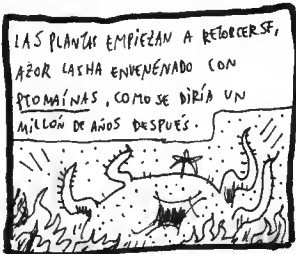 LAS PLANTAS EMPIEZAN A RETORCERSE,
AZOR LAS HA ENVENENADO CON
PTOMAÍNAS, COMO SE DIRÍA UN
MILLÓN DE AÑOS DESPUÉS.